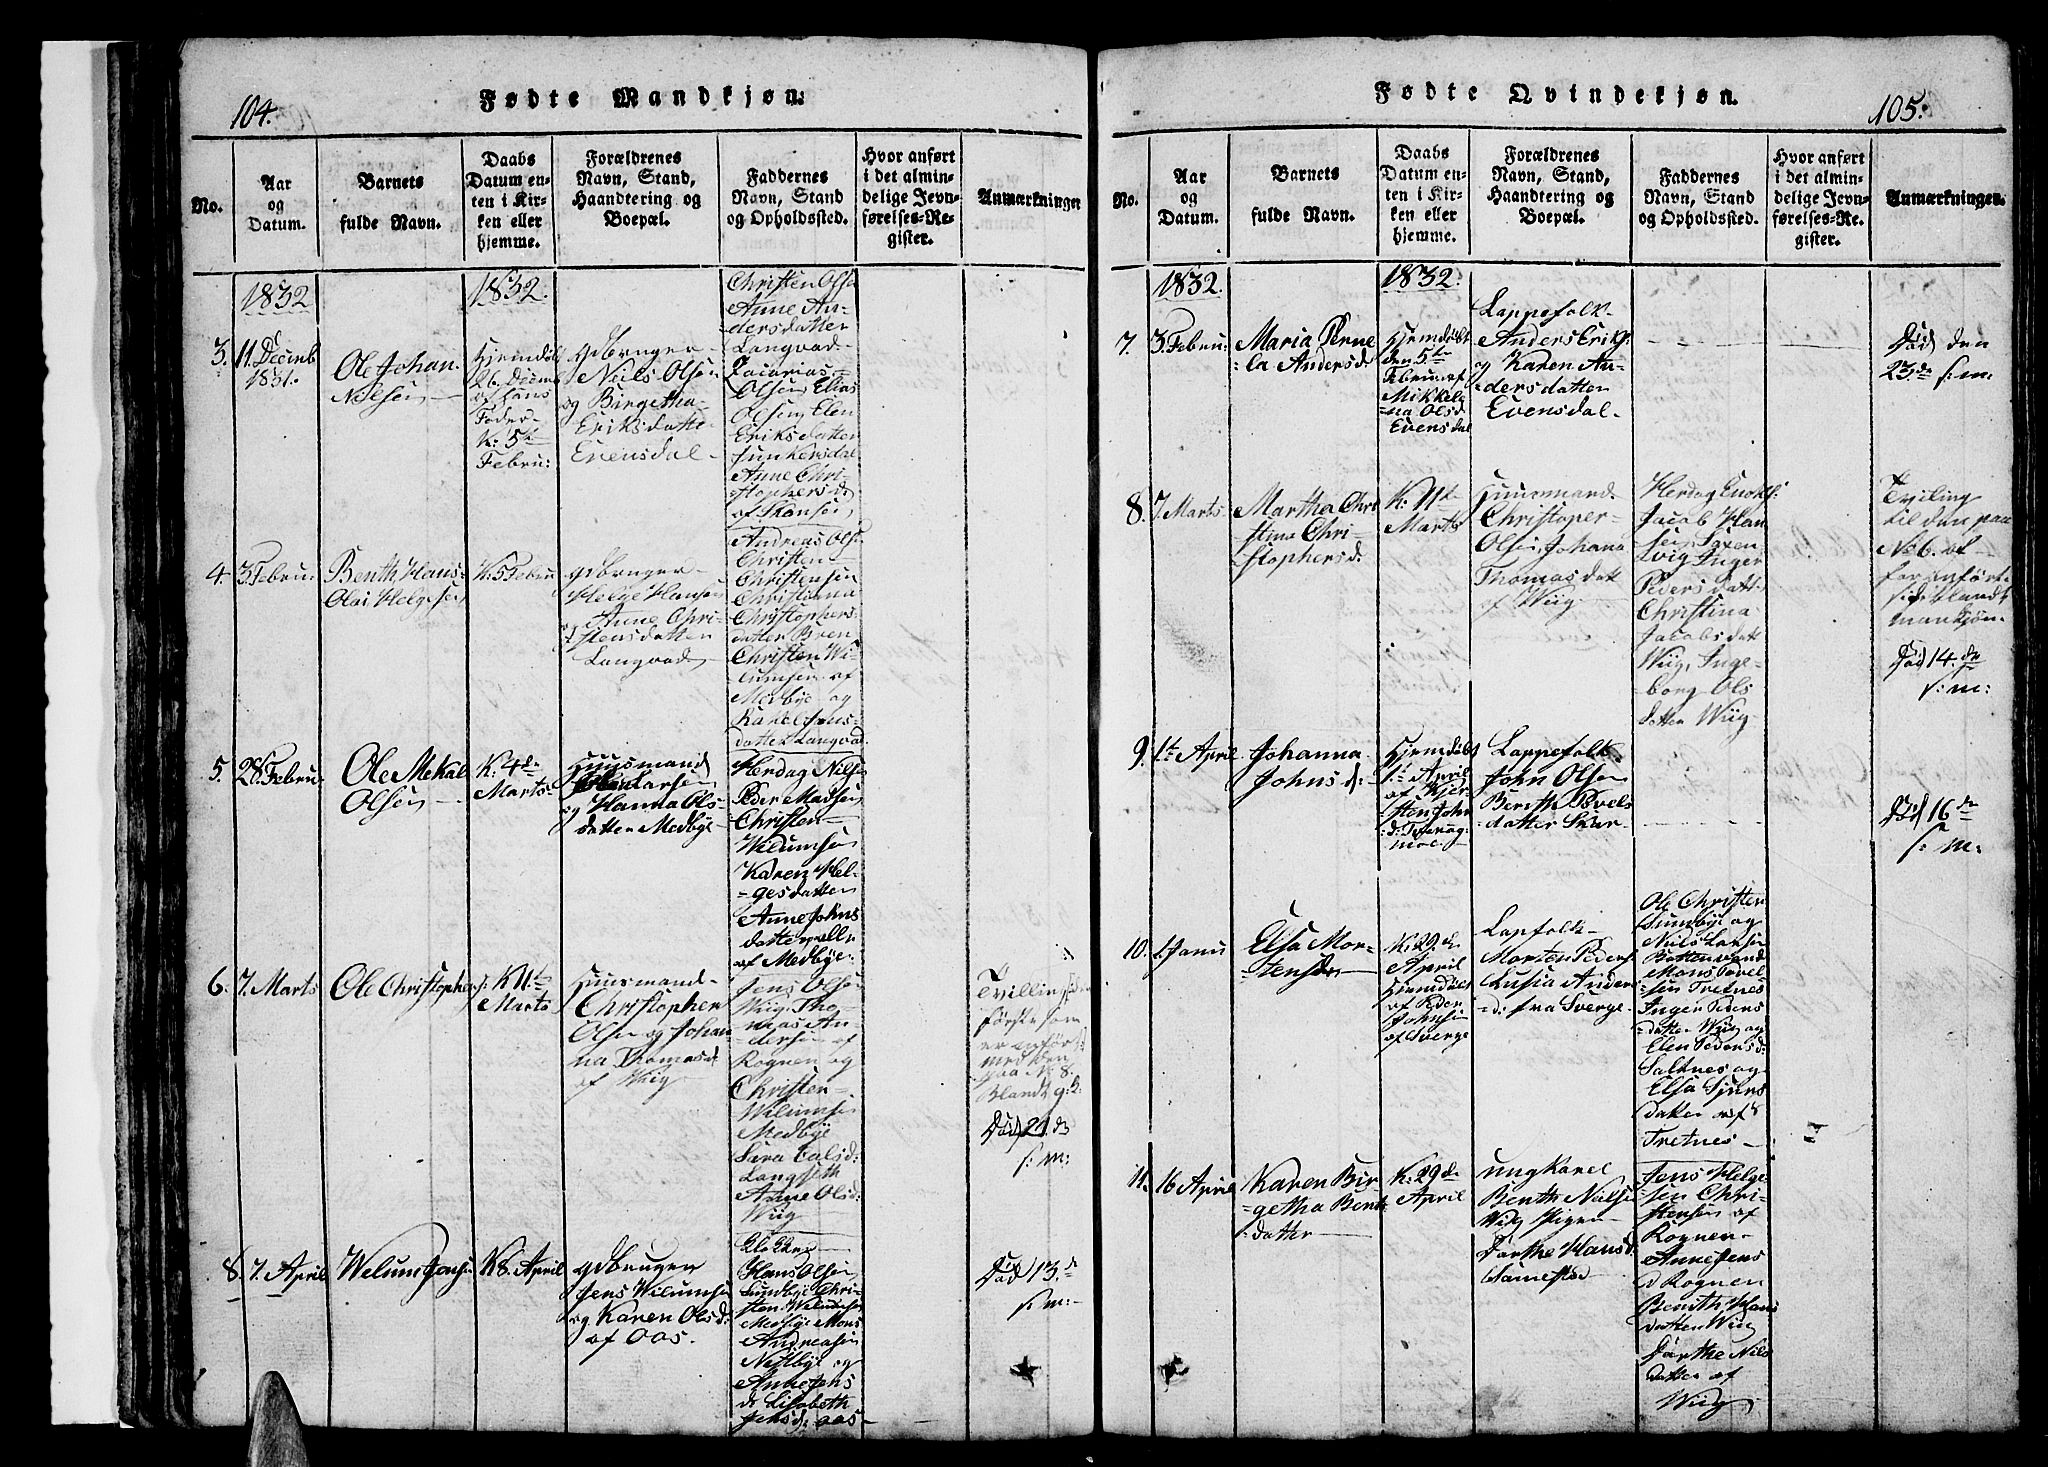 104.
Fødte Mandkjøn.
No.
Aar
og
Datum.
Barnets
fulde Navn.
Daabs
Datum en-
ten i Kir-
ken eller
hjemme.
Forældrenes
Navn, Stand,
Haandtering og
Boepæl.
Faddernes
Navn, Stand
og Opholdssted.
Hvor anført
i det almin-
delige Jevn-
førelses-Re-
gister.
Anmærkninger
1832
1832.
3.
11 Decemb
1831.
Ole Johan
Nilsen
Hjemdøbt
26. Decemb
af
Fader
K: 5te
Febru:
Gdbruger
Niels Olsen
og Birgetha
Eriksdatte
Evensdal
Christen Olsen
Anne An-
dersdatter
Langvad
Zacarias
Olsen Elias
Olsen Elen
Eriksdatter
Junkersdal
Anne Chri-
stophersd.
af
4.
3 Febru
Benth Hans
Olai Helgesen
K: 5 Febru
Gdbruger
Helge Hansen
Anne Chri-
stensdatter
Langvad
Andreas Olsen
Christen
Christensen
Christiana
Christophers
datter
Christen Wi-
lumsen af
Medbye og
Karel Jens
datter Langvad
5.
28 Febru
Ole Mekal
Olsen
K: 4de
Marts
Huusmand
Larsen
og Hanna Ols
datter Medbye
Herdag Nilsen
Peder Madsen
Christen
Wilumsen
Karen Hel-
gesdatter
Anne Johns
datter alle
af Medbye:
6.
7. Marts
Ole Christophers:
K 11te
Marts
Huusmand
Christopher
Olsen og Johan
na Thomasd
af Wiig
Jens Olsen
Wiig, Tho-
mas An-
dersen af
Rognen og
Christen
Wilumsen
Medbye
Sara
Langseth
Anne Olsd:
Wiig
Tvilling
første som
er anført
med den
paa No 8.
Blandt q: k.
Død 21. de
s: m:
8.
7. April
Welum Jensen
K 8. April
Gdbruger
Jens Wilumsen
og Karen Olsd:
af Aas.
Klokker
Hans Olsen
Sundbye Chri-
sten Wilumsen
Medbye Mons
Andreasen
Nestbye og
Anne Jens
d: Elisabeth
Jensd: Aas
Død 13.de
s: m:
Fødte Qvindekjøn.
105.
No.
Aar
og
Datum.
Barnets
fulde Navn.
Daabs
Datum en-
ten i Kir-
ken eller
hjemme.
Forældrenes
Navn, Stand,
Haandtering og
Boepæl.
Faddernes
Navn, Stand
og Opholdssted.
Hvor anført
i det almin-
delige Jevn-
førelses-Re-
gister.
Anmærkninger.
1832.
1832.
7.
3 Febru:
Maria Perne
la Andersd
Hjemdøbt
den 5te
Febru af
Mikkeli
na Olsd
Evensdal
Lappefolk
Anders Eriks:
og Karen An-
dersdatter
Evensdal
Død den
23.de s: m:
8.
7 Marts
Martha Chri
stina Chri-
stophersd.
K: 11te
Marts
Huusmand
Christoper
Olsen, Johana
Thomasdatt
af Wiig
Herdag Enoks:
Jacob Han
sen Saxen
vig Inger
Pedersdatt
Christina
Jacobsdatt
Wiig, Inge-
borg Ols
datter Wiig
Tviling
til den paa
No 6. of
for anførte
blandt
mankjøn
Død 14.de
s: m:
9.
1te April
Johanna
Johnsd:
Hjemdøbt
1te April
af Kjer
sten John
d:
moe
Lappefolk
John Olsen
Bereth Povels
datter
Død 16de
s: m:
10.
1 Janu
Elsa Mor-
tensd
K: 29.de
April
Hjemdøbt
af Peder
Johnsen
af Sverge
Lapfolk
Morten Peders
Lusia Anders
d: fra Sverge
Ole Christen
Sundbye og
Niels Larsen
Bottenvand
Mons Povel
sen Tretnes
Inger Peders
datter Wiig og
Elen Pedersd:
Saltnes og
Elsa Sjurs
datter af
Tretnes
11.
16 April
Karen Bir-
getha Bent
datter
K: 29de
April
Ungkarel
Benth Nielsen
Wiig Pigen
Dorthe Hansd.
Samested
Jens Helge
sen Chri-
stensen af
Rognen
Anne Jens
d Rognen
Benith Hans
datter Wiig
Dorthe Nils
datter af
Wiig